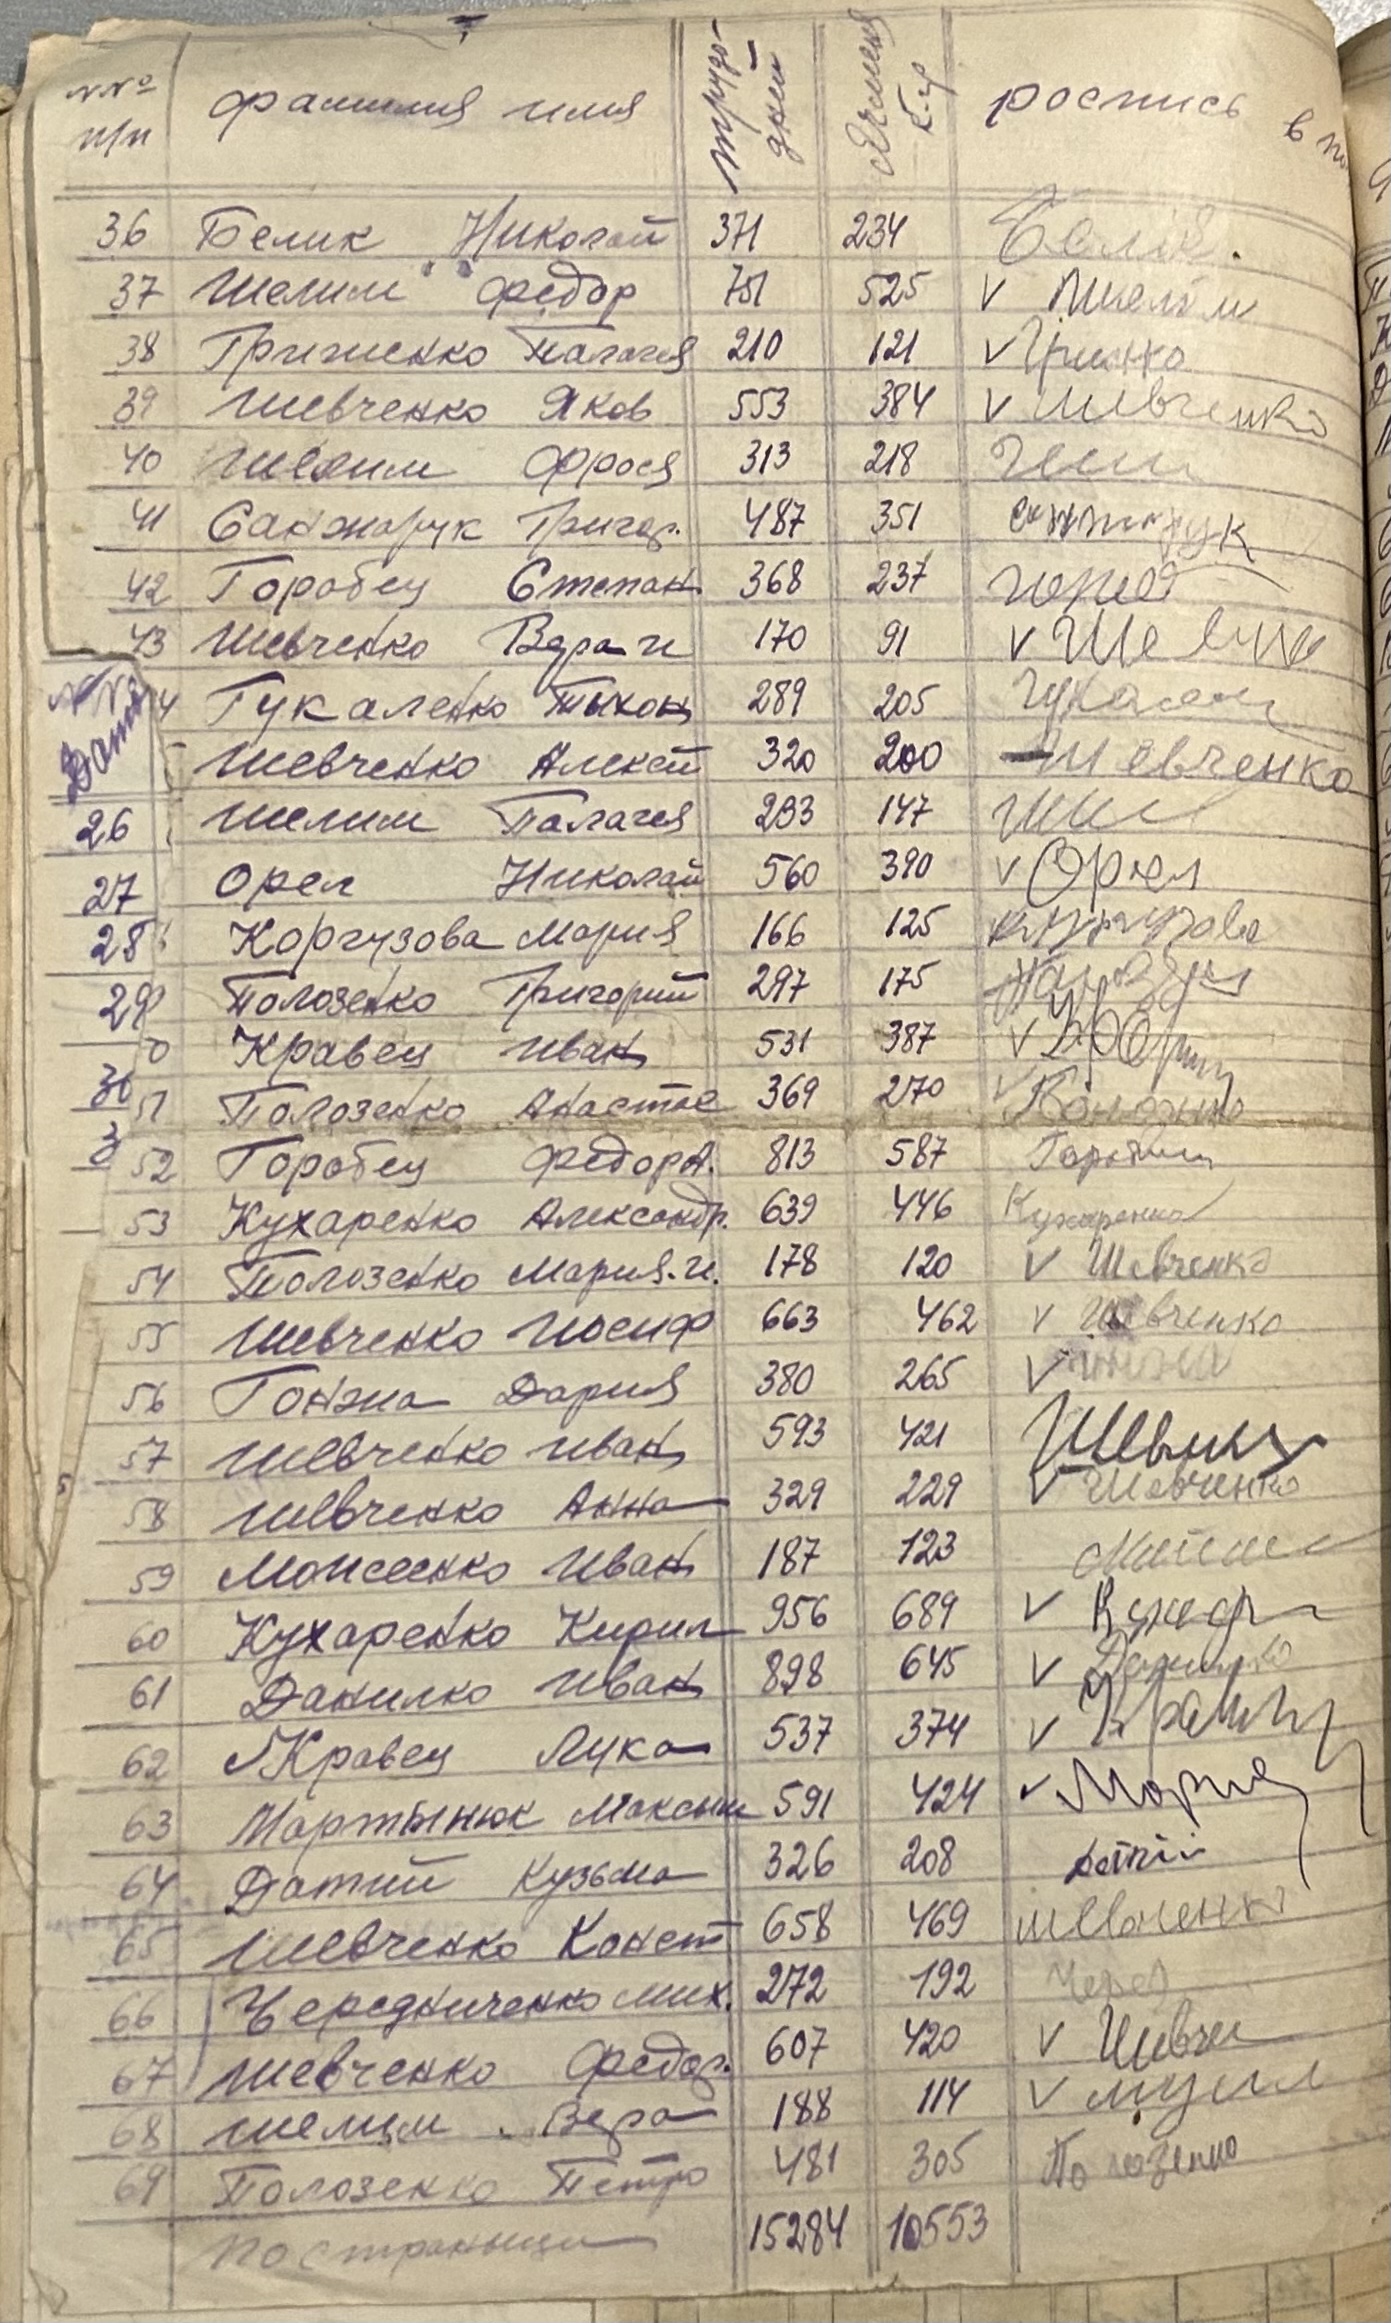 №№ п/п фамилия имя трудо-дней Ячменя к-гр роспись в по
36 Белик Николай 371 234 Белік.
37 Шелим Федор 751 525 v Шелим
38 Гриженко Палагея 210 121 v
39 Шевченко Яков 553 384 v Шевченко
40 Шелим Фрося 313 218
41 Санжарук Григор. 487 351
42 Горобец Степан 368 237
43 Шевченко Вера И 170 91 v
№№ 4 Гукаленко Тыхон 289 205
Дата 5 Шевченко Алексей 320 200 Шевченко
26 Шелим Палагея 233 147
27 Орел Николай 560 390 v Орел
28 Коргузова Мария 166 125
29 Полозенко Григорий 297 175
0 Кравец Иван 531 387 v
30 51 Полозенко Анастас 369 270 v
3 52 Горобец Федор А. 813 587
53 Кухаренко Александр. 639 446 Кухаренко
54 Полозенко Мария.И. 178 120 v Шевченко
55 Шевченко Иосиф 663 462 v Шевченко
56 Гонжа Дария 380 265 v
57 Шевченко Иван 593 421
58 Шевченко Анна 329 229 v Шевченко
59 Моисеенко Иван 187 123
60 Кухаренко Кирил 956 689 v
61 Данилко Иван 898 645 v Данилко
62 v Кравец Лука 537 374 v
63 Мартынюк Максим 591 424 v
64 Датий Кузьма 326 208 Датій
65 Шевченко Конст 658 469 Шевченко
66 Чередниченко Мих. 272 192 Черед
67 Шевченко Федор. 607 420 v Шевчен
68 Шелим Вера 188 114 v
69 Полозенко Петро 481 305 Полозенко
по странице 15284 10553